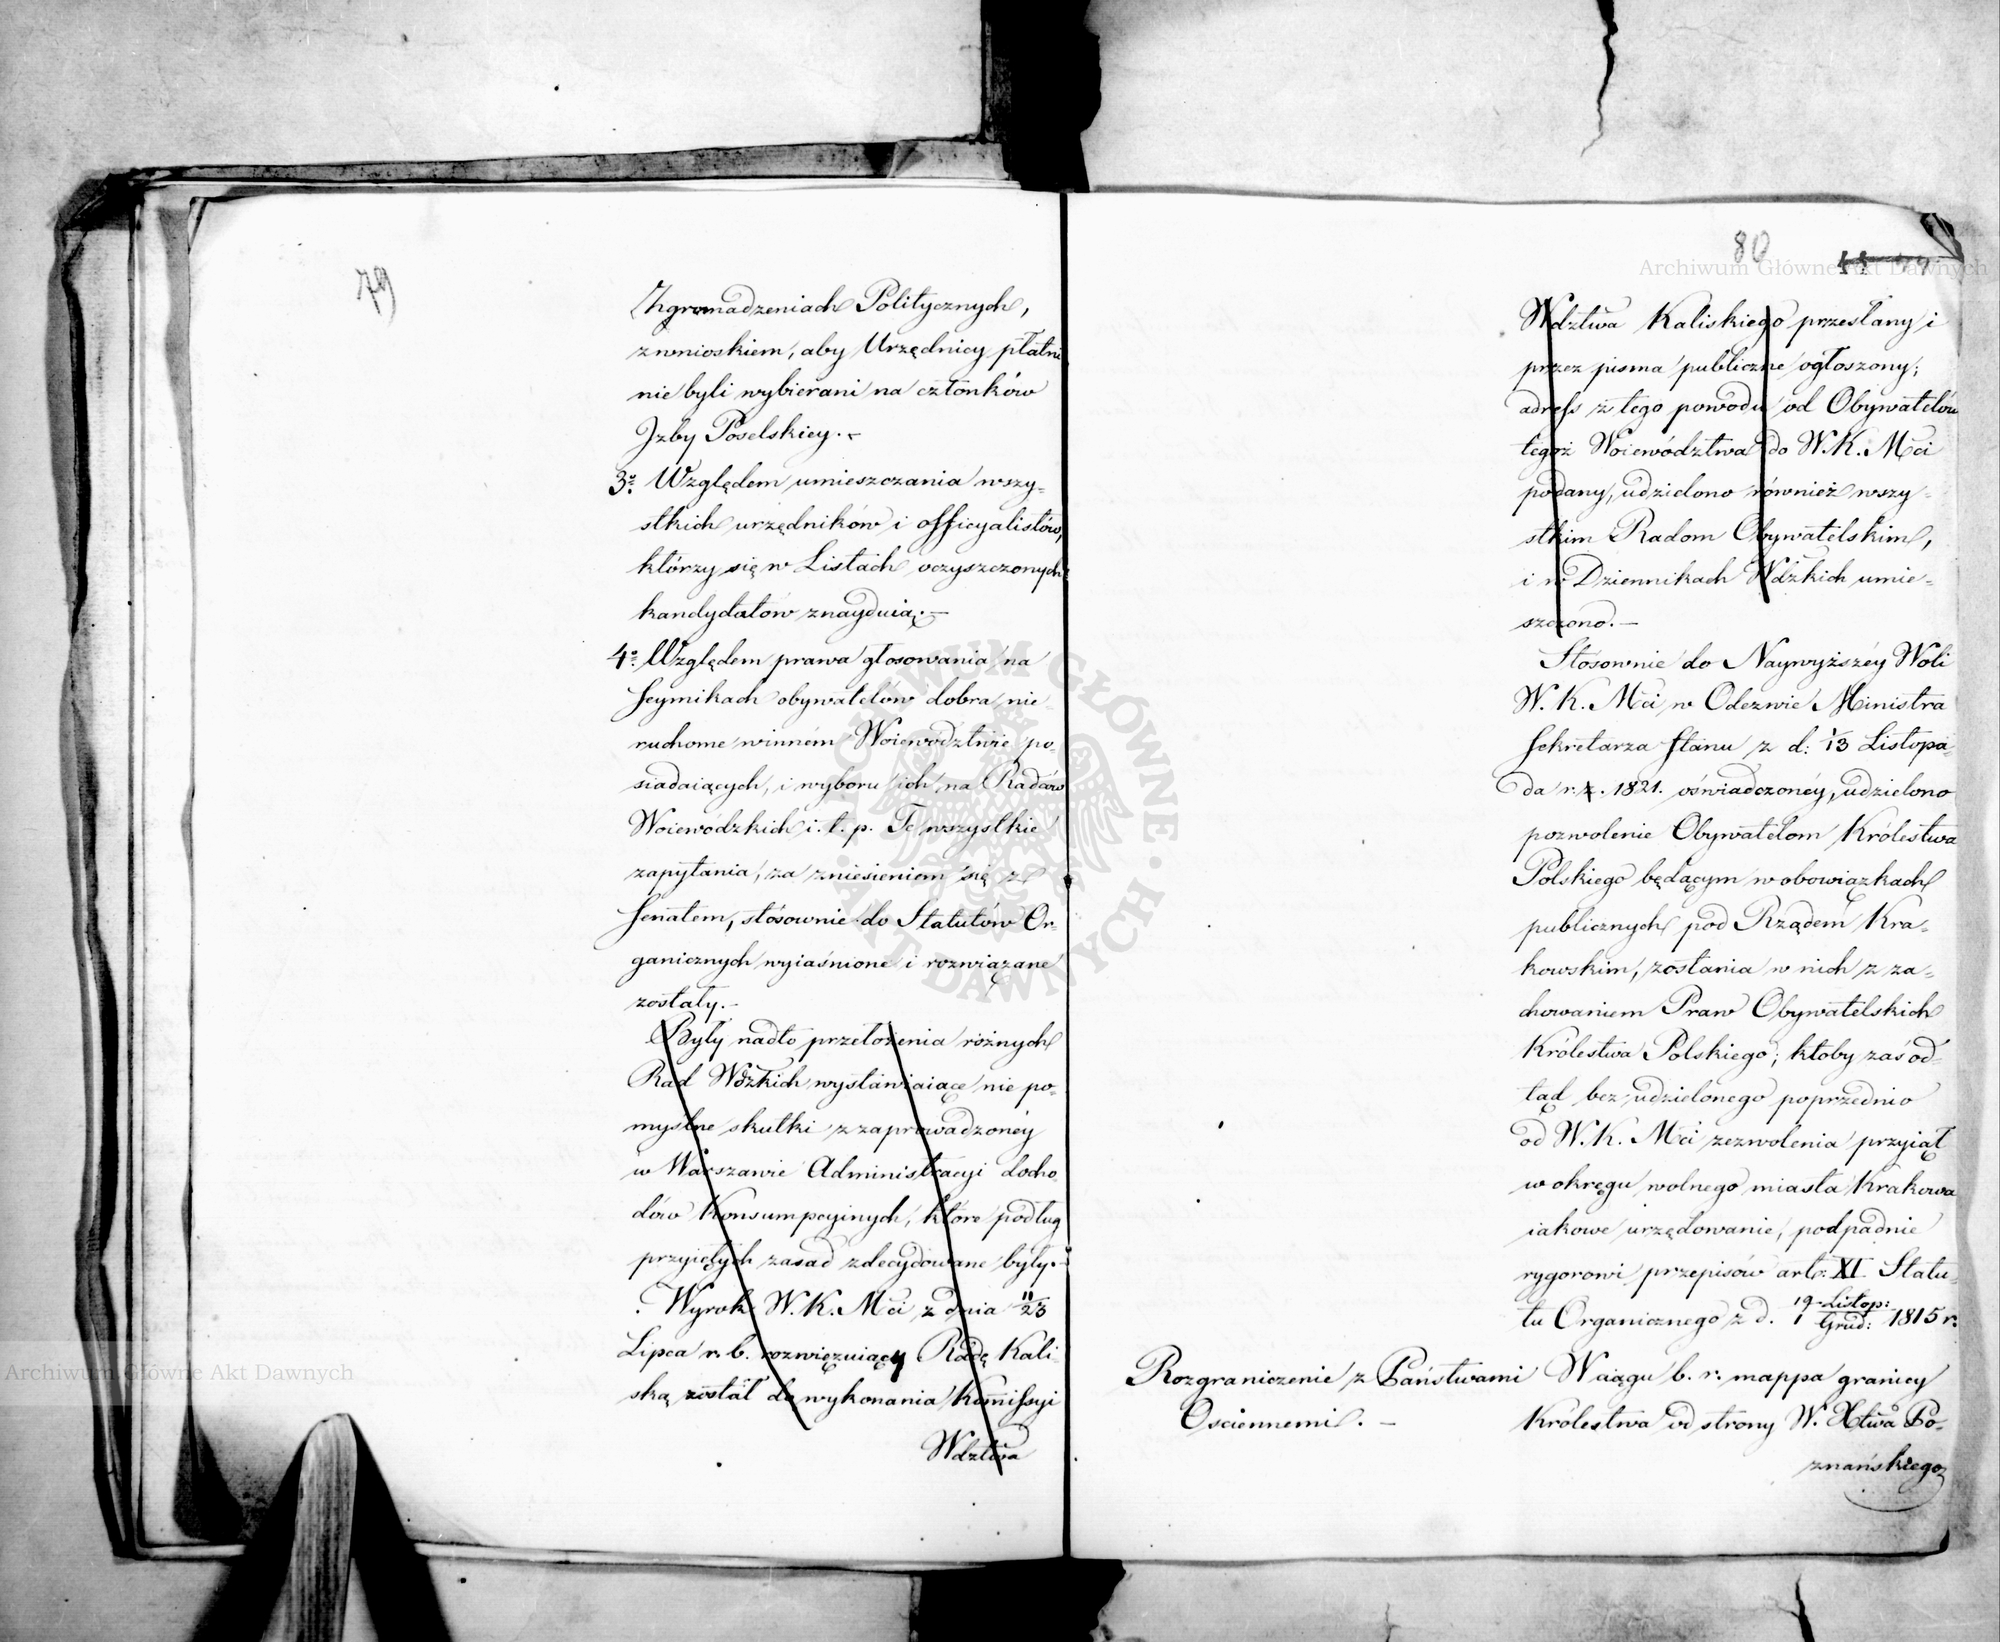 79
Zgromadzeniach Politycznych,
z wnioskiem, aby Urzędnicy płatni
nie byli wybierani na członków
Izby Poselskiey.-
3o. Względem umieszczania wszy=
stkich urzędników i officyalistów,
którzy się w Listach oczyszczonych
kandydatów znayduią.-
4o. Względem prawa głosowania na
Seymikach obywatelów dobra nie
ruchome w inném Woiewództwie po=
siadaiących, i wyboru ich na Radców
Woiewódzkich i. t. p. Te wszystkie
zapytania, za zniesieniem się z
Senatem, stósownie do Statutów Or=
ganicznych wyiaśnione i rozwiązane
zostały.-
Były nadto przełożenia różnych
Rad Wdzkich wystawiaiące nie po=
myślne skutki z zaprowadzonéy
w Warszawie Administracyi docho=
dów Konsumpcyinych, które podług
przyiętych zasad zdecydowane były.-
Wyrok W. K. Mci z dnia 11/23
Lipca r. b. rozwięzuiący Radę Kali=
ską został do wykonania Kommissyi
Wdztwa
80
Wdztwa Kaliskiego przesłany i
przez pisma publiczne ogłoszony;
adress z tego powodu od Obywatelów
tegoż Woiewództwa do W. K. Mci
podany, udzielono również wszy=
stkim Radom Obywatelskim,
i w Dziennikach Wdzkich umie=
szczono.-
Stósownie do Naywyższéy Woli
W. K. Mci w Odezwie Ministra
Sekretarza Stanu z d: 1/13 Listopa=
da r. z. 1821. oświadczonéy, udzielono
pozwolenie Obywatelom Królestwa
Polskiego będącym w obowiązkach
publicznych pod Rządem Kra=
kowskim, zostania w nich z za=
chowaniem Praw Obywatelskich
Królestwa Polskiego; ktoby zaś od=
tąd bez udzielonego poprzednio
od W. K. Mci zezwolenia przyiął
w okręgu wolnego miasta Krakowa
iakowe urzędowanie, podpadnie
rygorowi przepisów art: XI Statu=
tu Organicznego z d. 19 Listop:/1 Grud: 1815 r.
Rozgraniczenie z Państwami
Osciennemi.-
W ciągu b. r. mappa granicy
Królestwa od strony W. Xtwa Po=
znańskiego
Archiwum Główne Akt Dawnych
Archiwum Główne Akt Dawnych
ARCHIWUM GŁÓWNE AKT DAWNYCH